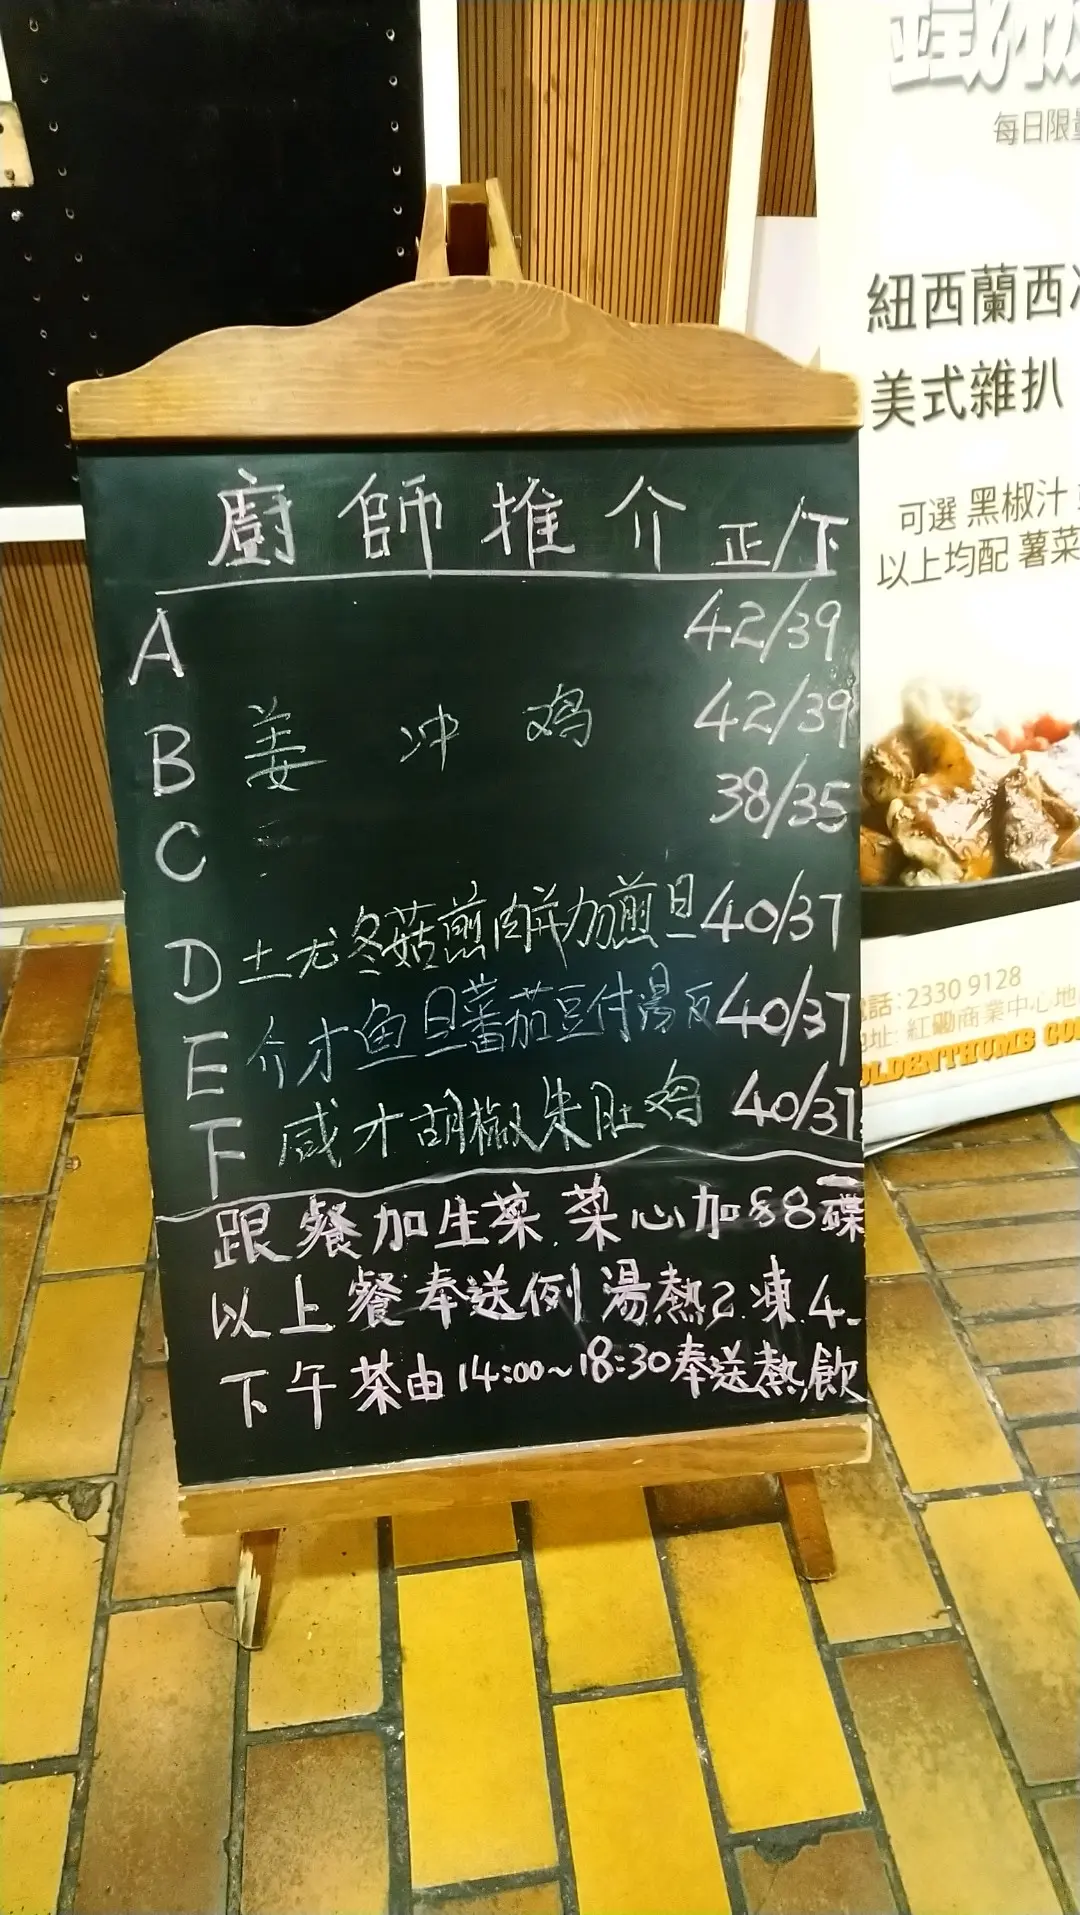 廚師推介 正/下
A 42/39
B 姜冲鸡 42/39
C 38/35
D 土尤冬菇煎肉餅加煎旦 40/37
E 介才鱼旦蕃茄豆付湯反 40/37
F 咸才胡椒朱肚鸡 40/37
跟餐加生菜.菜心加$8一碟
以上餐奉送例湯熱2.凍4.
下午茶由14:00~18:30奉送熱飲
每日限量
紐西蘭西冷
美式雜扒
可選 黑椒汁
以上均配 薯菜
電話: 2330 9128
地址: 紅磡商業中心地
GOLDENTHUMB